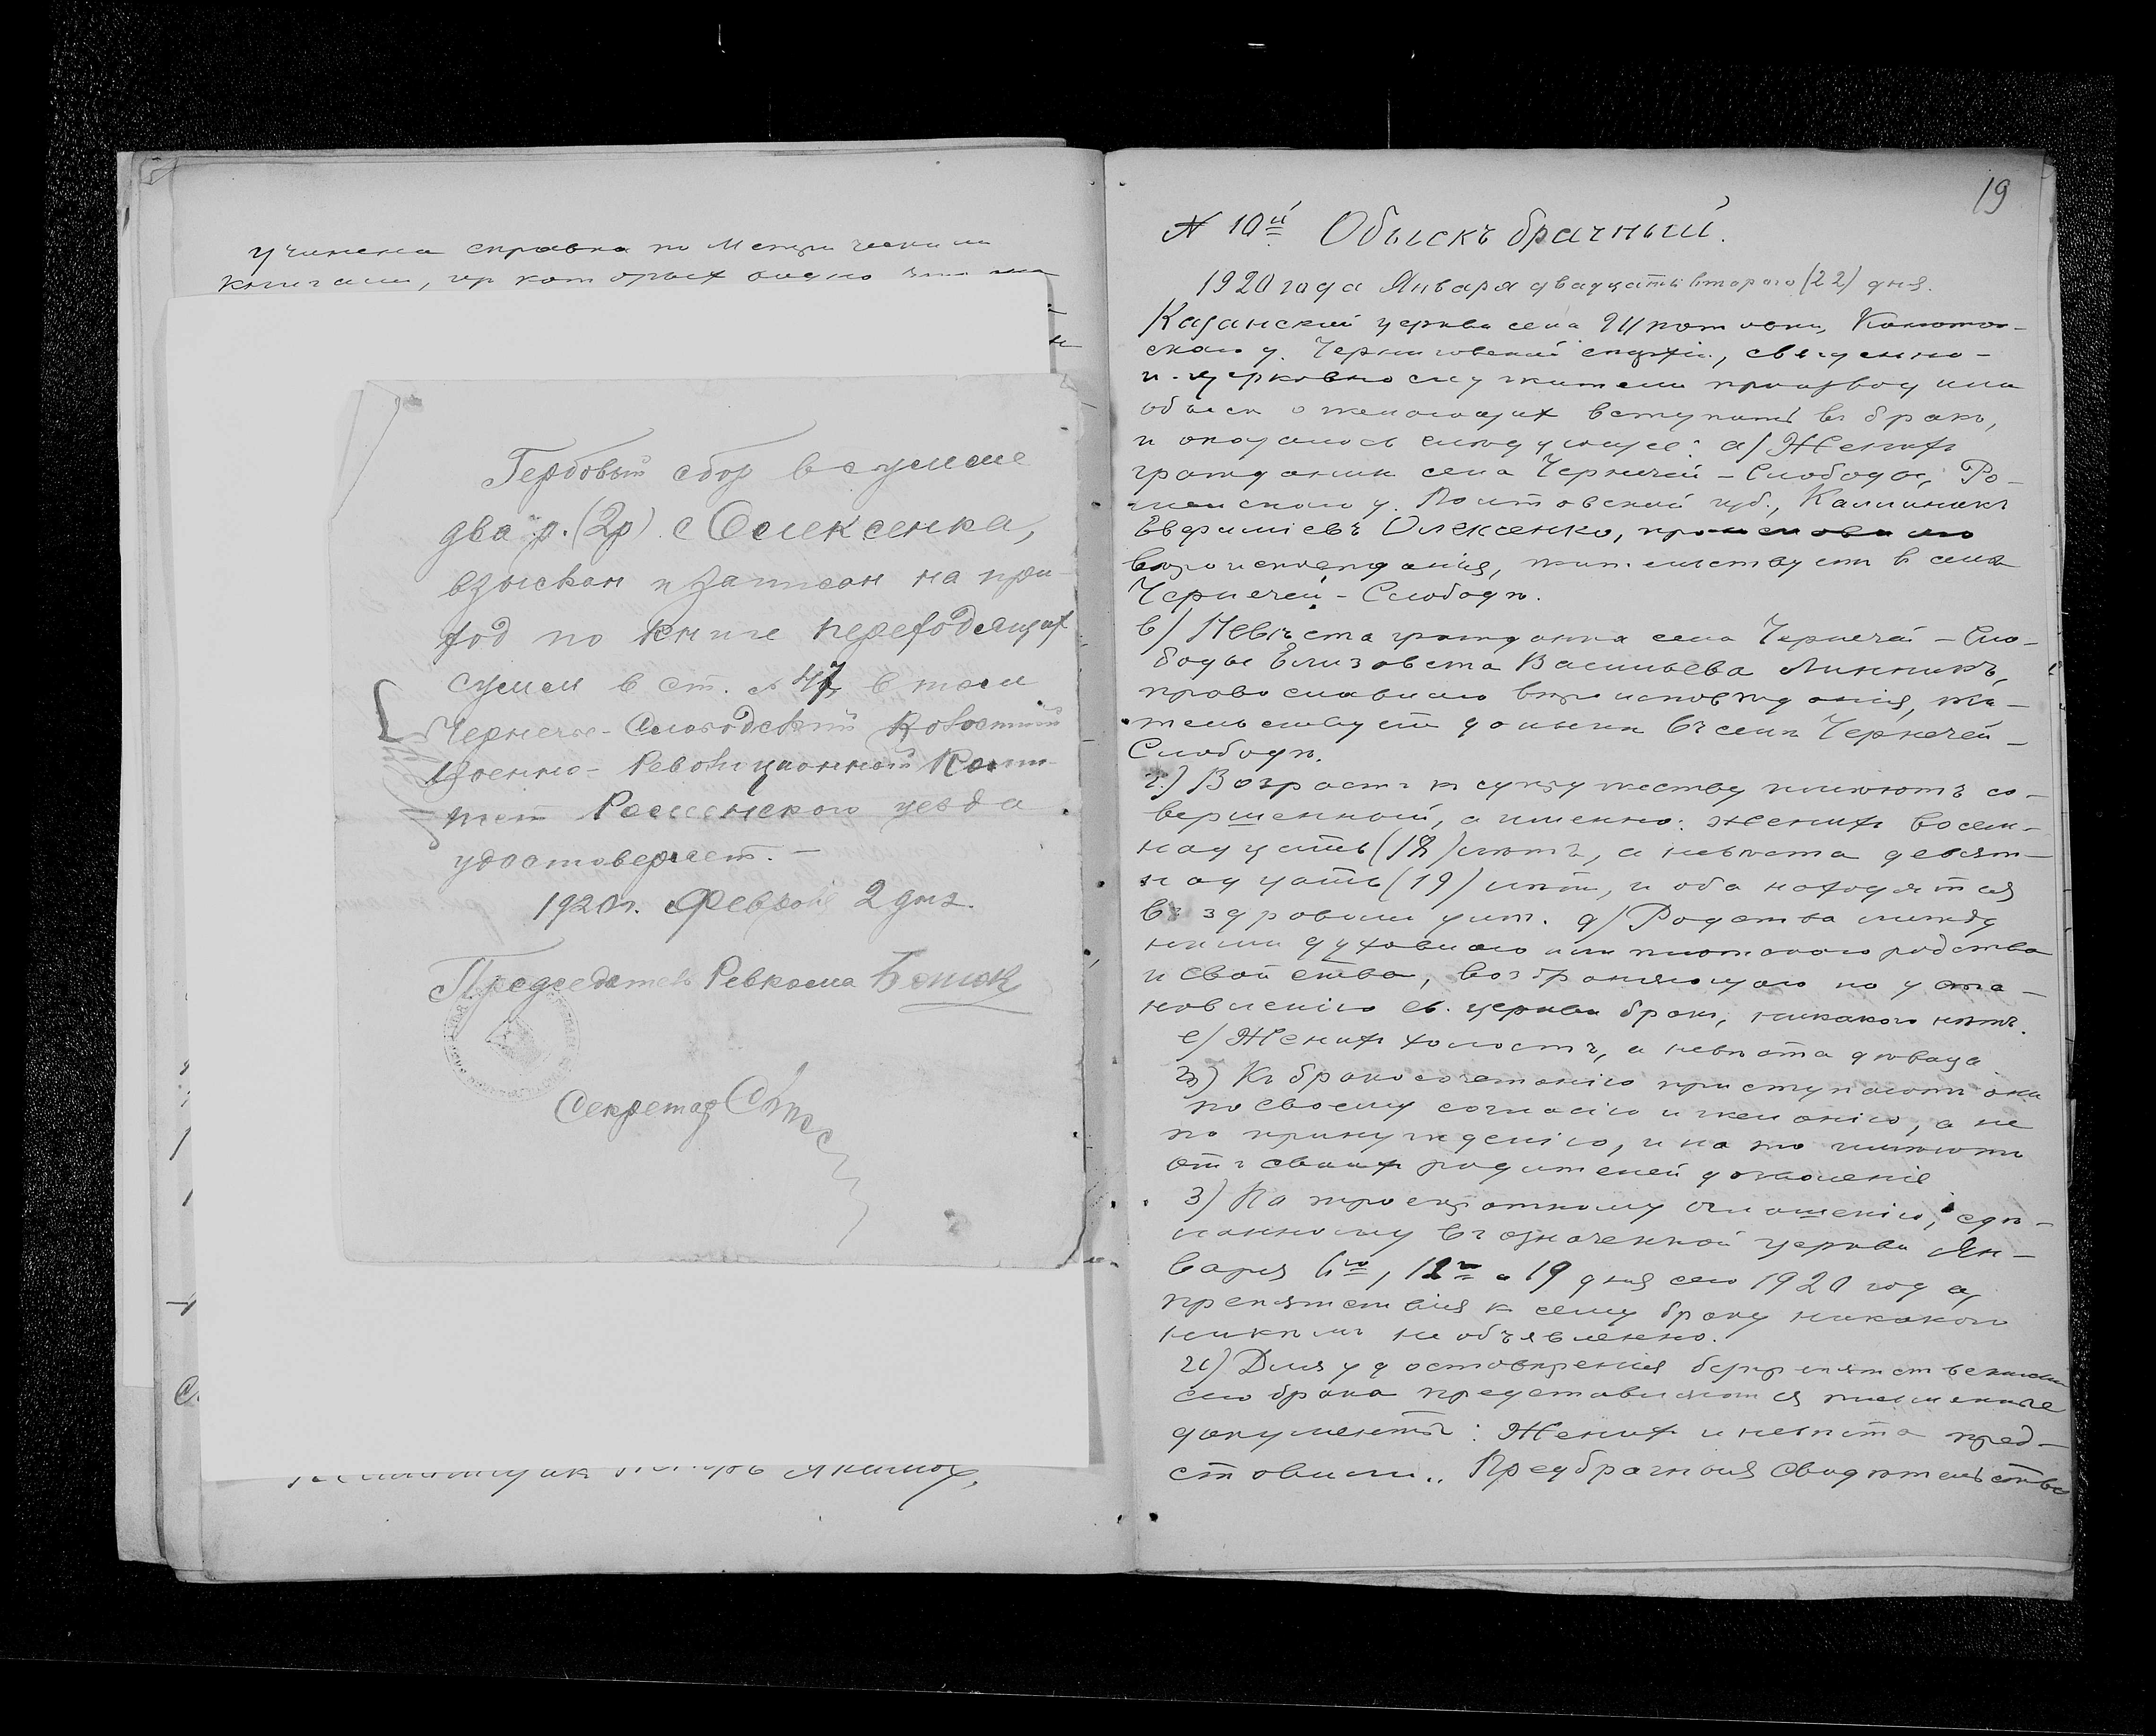 учинена справка по Метрическим
книгам, из которых видно что
Гербовый сбор в сумме
два р. (2р) с Олексенка,
взыскан и записан на при-
ход по книге переходящих
сумм в ст. № 47, в том
Чернече-Слободский Волостной
Военно-Революционный Коми-
тет Роменского уезда
удостоверяет. —
1920 г. Февраля 2 дня.
Председатель Ревкома
Секретар
19
№ 10й Обыскъ брачный.
1920 года Января двадцать второго (22) дня.
Казанской церкви села Шаповаловки, Конотоп-
скаго у. Черниговской епархіи, священно-
и церковнослужители производили
обыск о желающих вступить въ бракъ,
и оказалось слѣдующее: а) Жених
гражданин села Чернечей-Слободы, Ро-
менскаго у. Полтавской губ., Каллиникъ
Евфиміевъ Олексенко, православнаго
вѣроисповѣданія, жительствует в селѣ
Чернечей-Слободѣ.
в) Невѣста гражданка села Чернечей-Сло-
боды Елизавета Васильева Линникъ,
православнаго вѣроисповѣданія, жи-
тельствует донынѣ въ селѣ Чернечей-
Слободѣ.
г) Возрастъ къ супружеству имѣютъ со-
вершенный, а именно: жених восем-
надцать (18) лѣтъ, а невѣста девят-
надцать (19) лѣтъ, и оба находятся
въ здравом умѣ. д) Родства между
ними духовнаго или плотскаго родства
и свойства, возбраняющаго по уста-
новленію св. церкви бракъ, никакого нѣтъ.
е) Жених холостъ, а невѣста дѣвица
ж) Къ бракосочетанію приступаютъ они
по своему согласію и желанію, а не
по принужденію, и на то имѣютъ
отъ своих родителей дозволеніе
з) По троекратному оглашенію, сдѣ-
ланному въ означенной церкви Ян-
варя 6го, 12го и 19 дня сего 1920 года,
препятствія к сему браку никакого
никѣмъ не объявленно.
и) Для удостовѣренія безпрепятственности
сего брака представляются письменные
документы: Жених и невѣста пред-
ставили.. Предбрачныя свидѣтельства